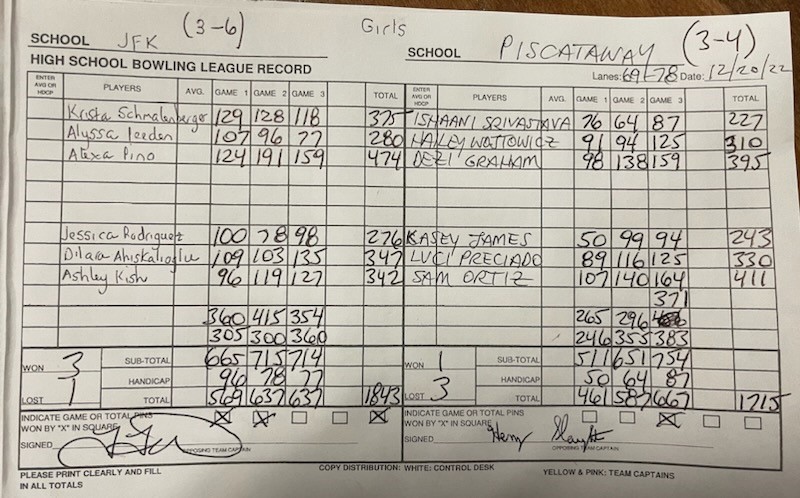 SCHOOL JFK (3-6) Girls SCHOOL PISCATAWAY (3-4)
HIGH SCHOOL BOWLING LEAGUE RECORD Lanes: 69-78 Date: 12/20/22
ENTER AVG OR HDCP PLAYERS AVG. GAME 1 GAME 2 GAME 3 TOTAL ENTER AVG OR HDCP PLAYERS AVG. GAME 1 GAME 2 GAME 3 TOTAL
Krista Schmalenberger 129 128 118 375 ISHAANI SRIVASTAVA 76 64 87 227
Alyssa Leeden 107 96 77 280 HAILEY WOTTOWICZ 91 94 125 310
Alexa Pino 124 191 159 474 DEZI GRAHAM 98 138 159 395
Jessica Rodriguez 100 78 98 276 KASEY JAMES 50 99 94 243
Dilara Ahiskalioglu 109 103 135 347 LUCI PRECIADO 89 116 125 330
Ashley Kish 96 119 127 342 SAM ORTIZ 107 140 164 411
371
360 415 354 265 296
305 300 360 246 355 383
WON 3 SUB-TOTAL 665 715 714 WON 1 SUB-TOTAL 511 651 754
HANDICAP 96 78 77 HANDICAP 50 64 87
LOST 1 TOTAL 569 637 637 1843 LOST 3 TOTAL 461 587 667 1715
INDICATE GAME OR TOTAL PINS INDICATE GAME OR TOTAL PINS
WON BY "X" IN SQUARE X X X WON BY "X" IN SQUARE X
SIGNED OPPOSING TEAM CAPTAIN SIGNED Henry OPPOSING TEAM CAPTAIN
PLEASE PRINT CLEARLY AND FILL COPY DISTRIBUTION: WHITE: CONTROL DESK YELLOW & PINK: TEAM CAPTAINS
IN ALL TOTALS